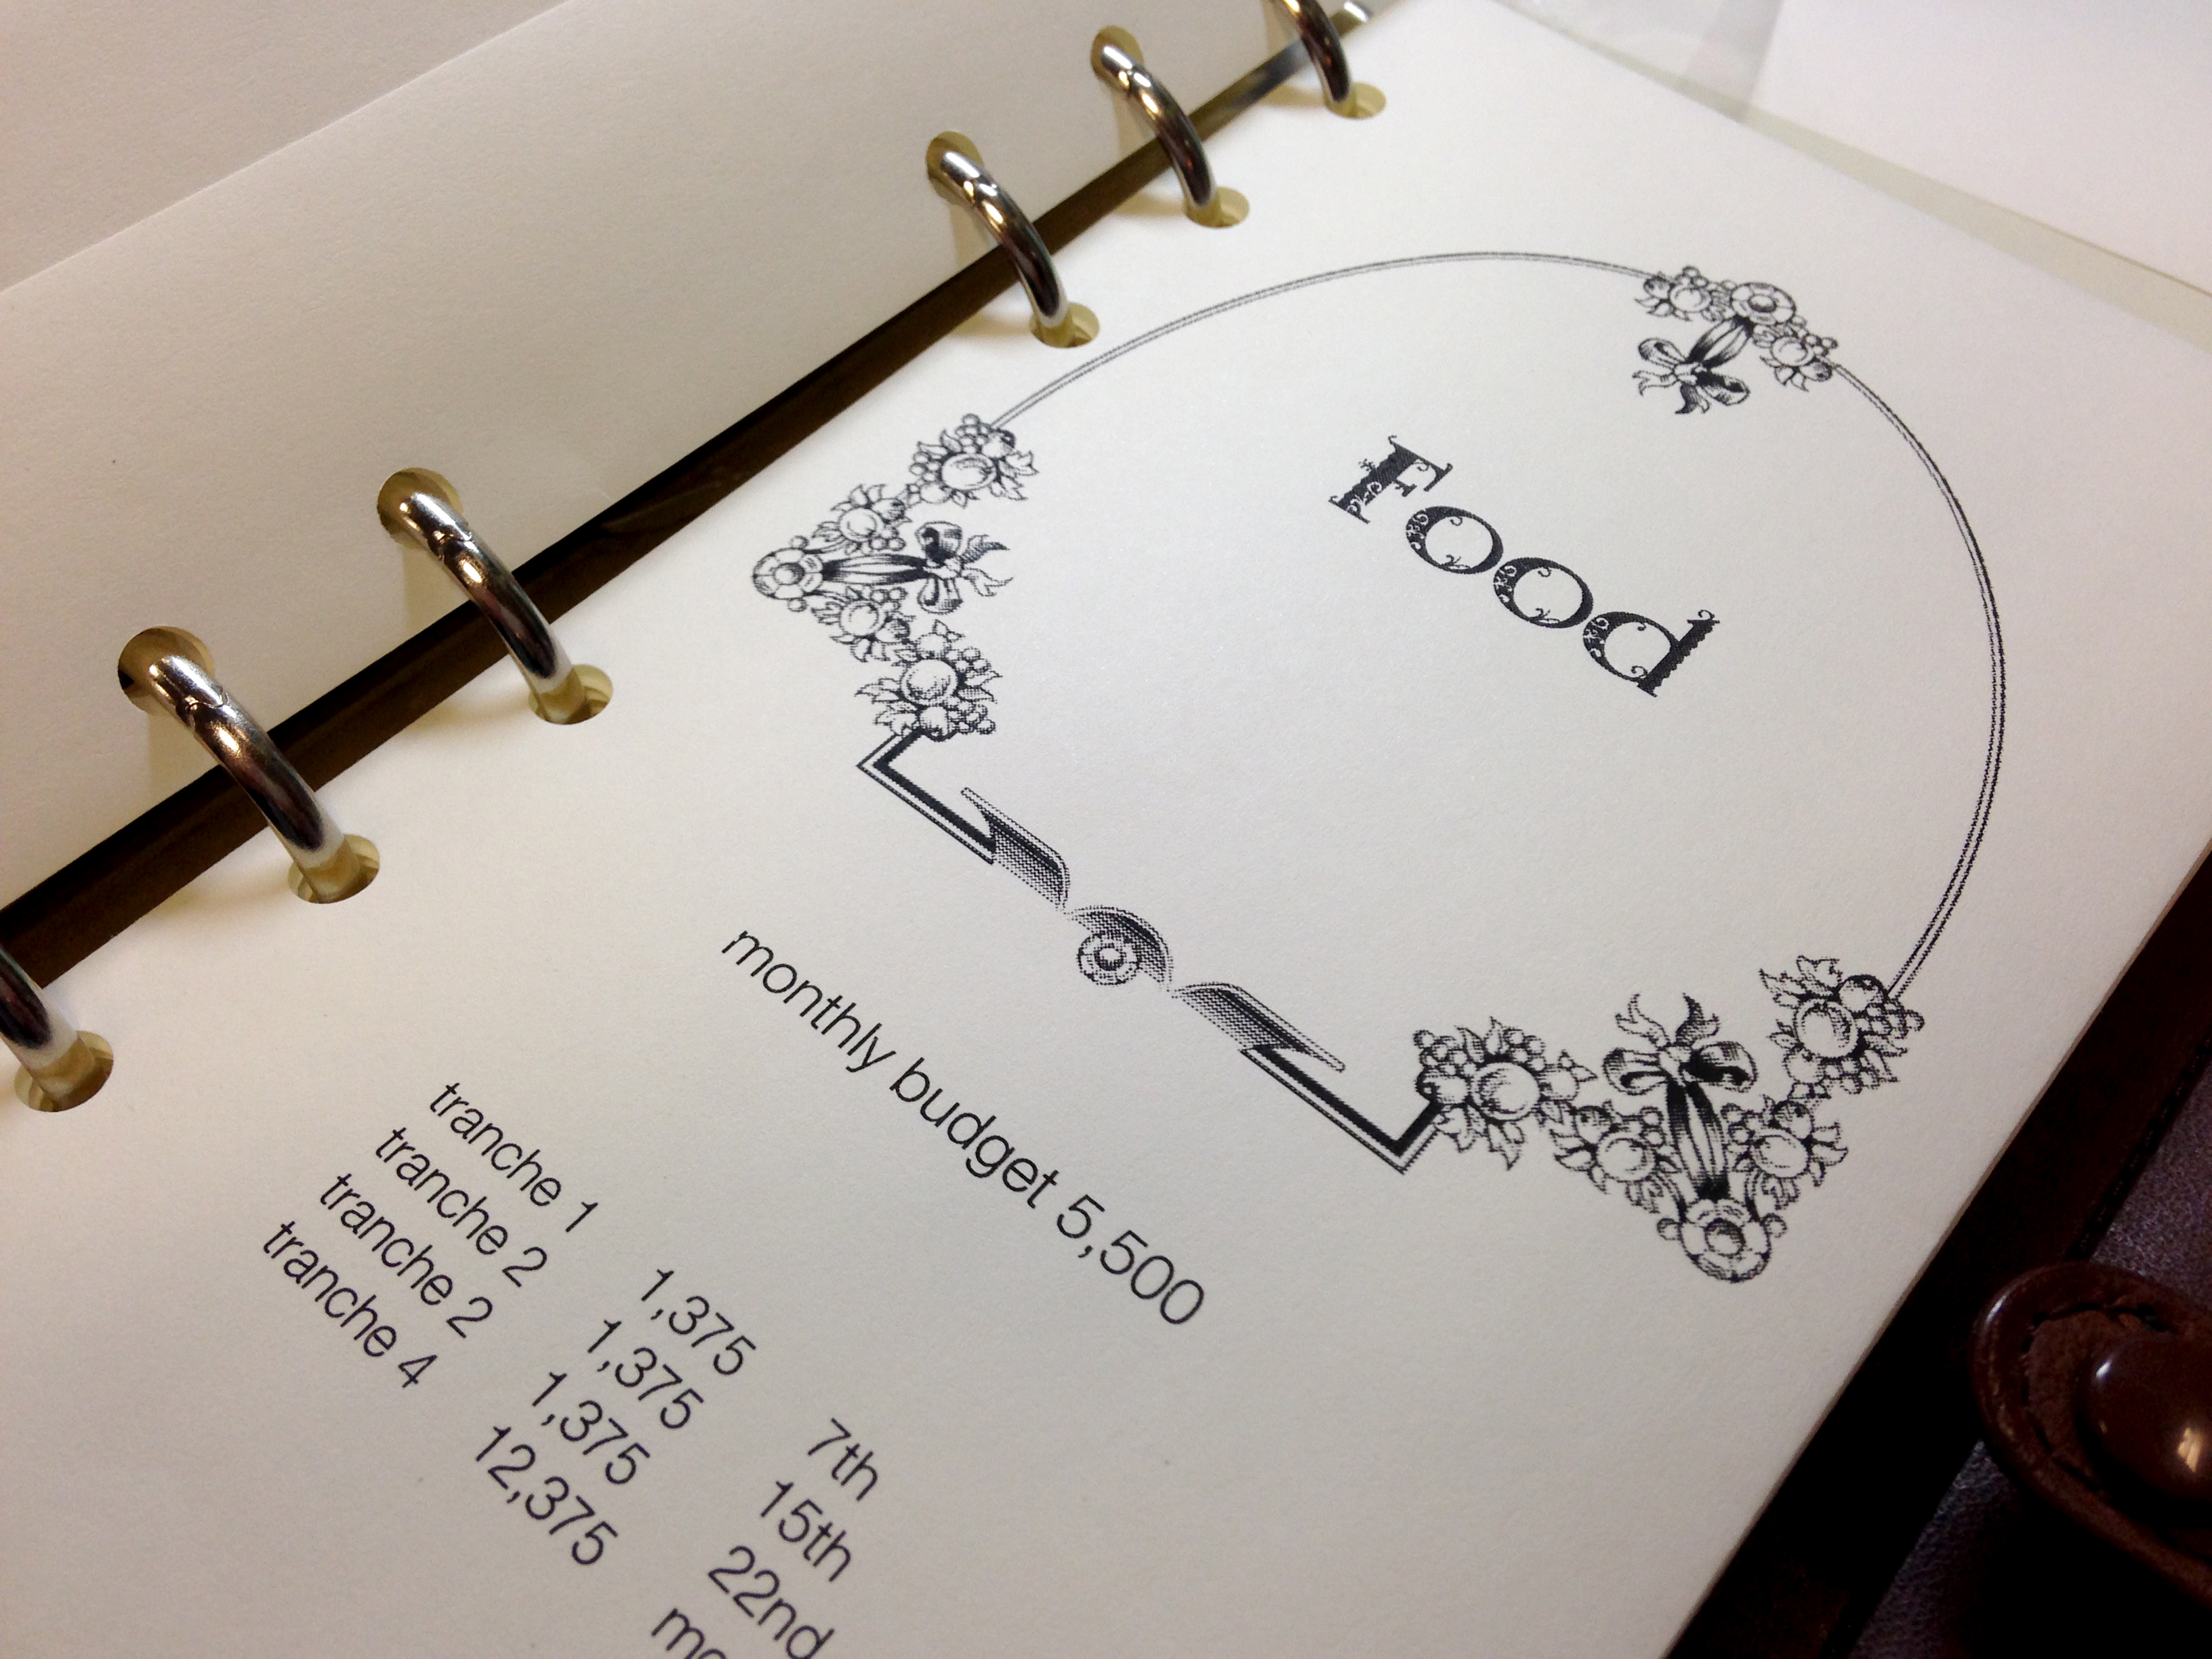 Food
monthly budget 5,500
tranche 1 1,375 7th
tranche 2 1,375 15th
tranche 2 1,375 22nd
tranche 4 12,375